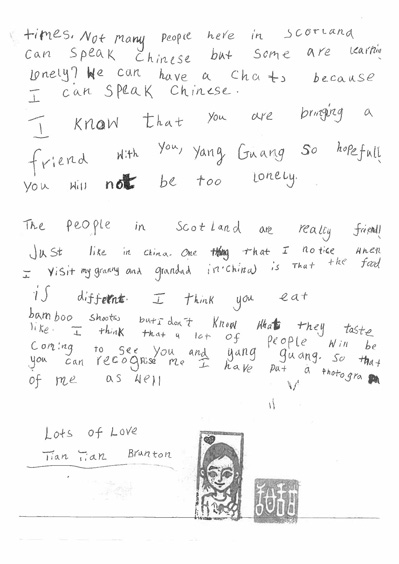 times. Not many people here in Scotland
can speak Chinese but some are learnin
Lonely? We can have a chats because
I can speak Chinese.
I know that you are bringing a
friend with you, Yang Guang so hopefull
you will not be too lonely.
The people in Scotland are really friendl
Just like in China. One thing that I notice when
I visit my granny and grandad in China) is that the food
is different. I think you eat
bamboo shoots but I don't know what they taste
like. I think that a lot of people will be
coming to see you and yang guang. So that
you can recognise me I have put a photogra
of me as well
Lots of Love
Tian Tian Branton
甜甜